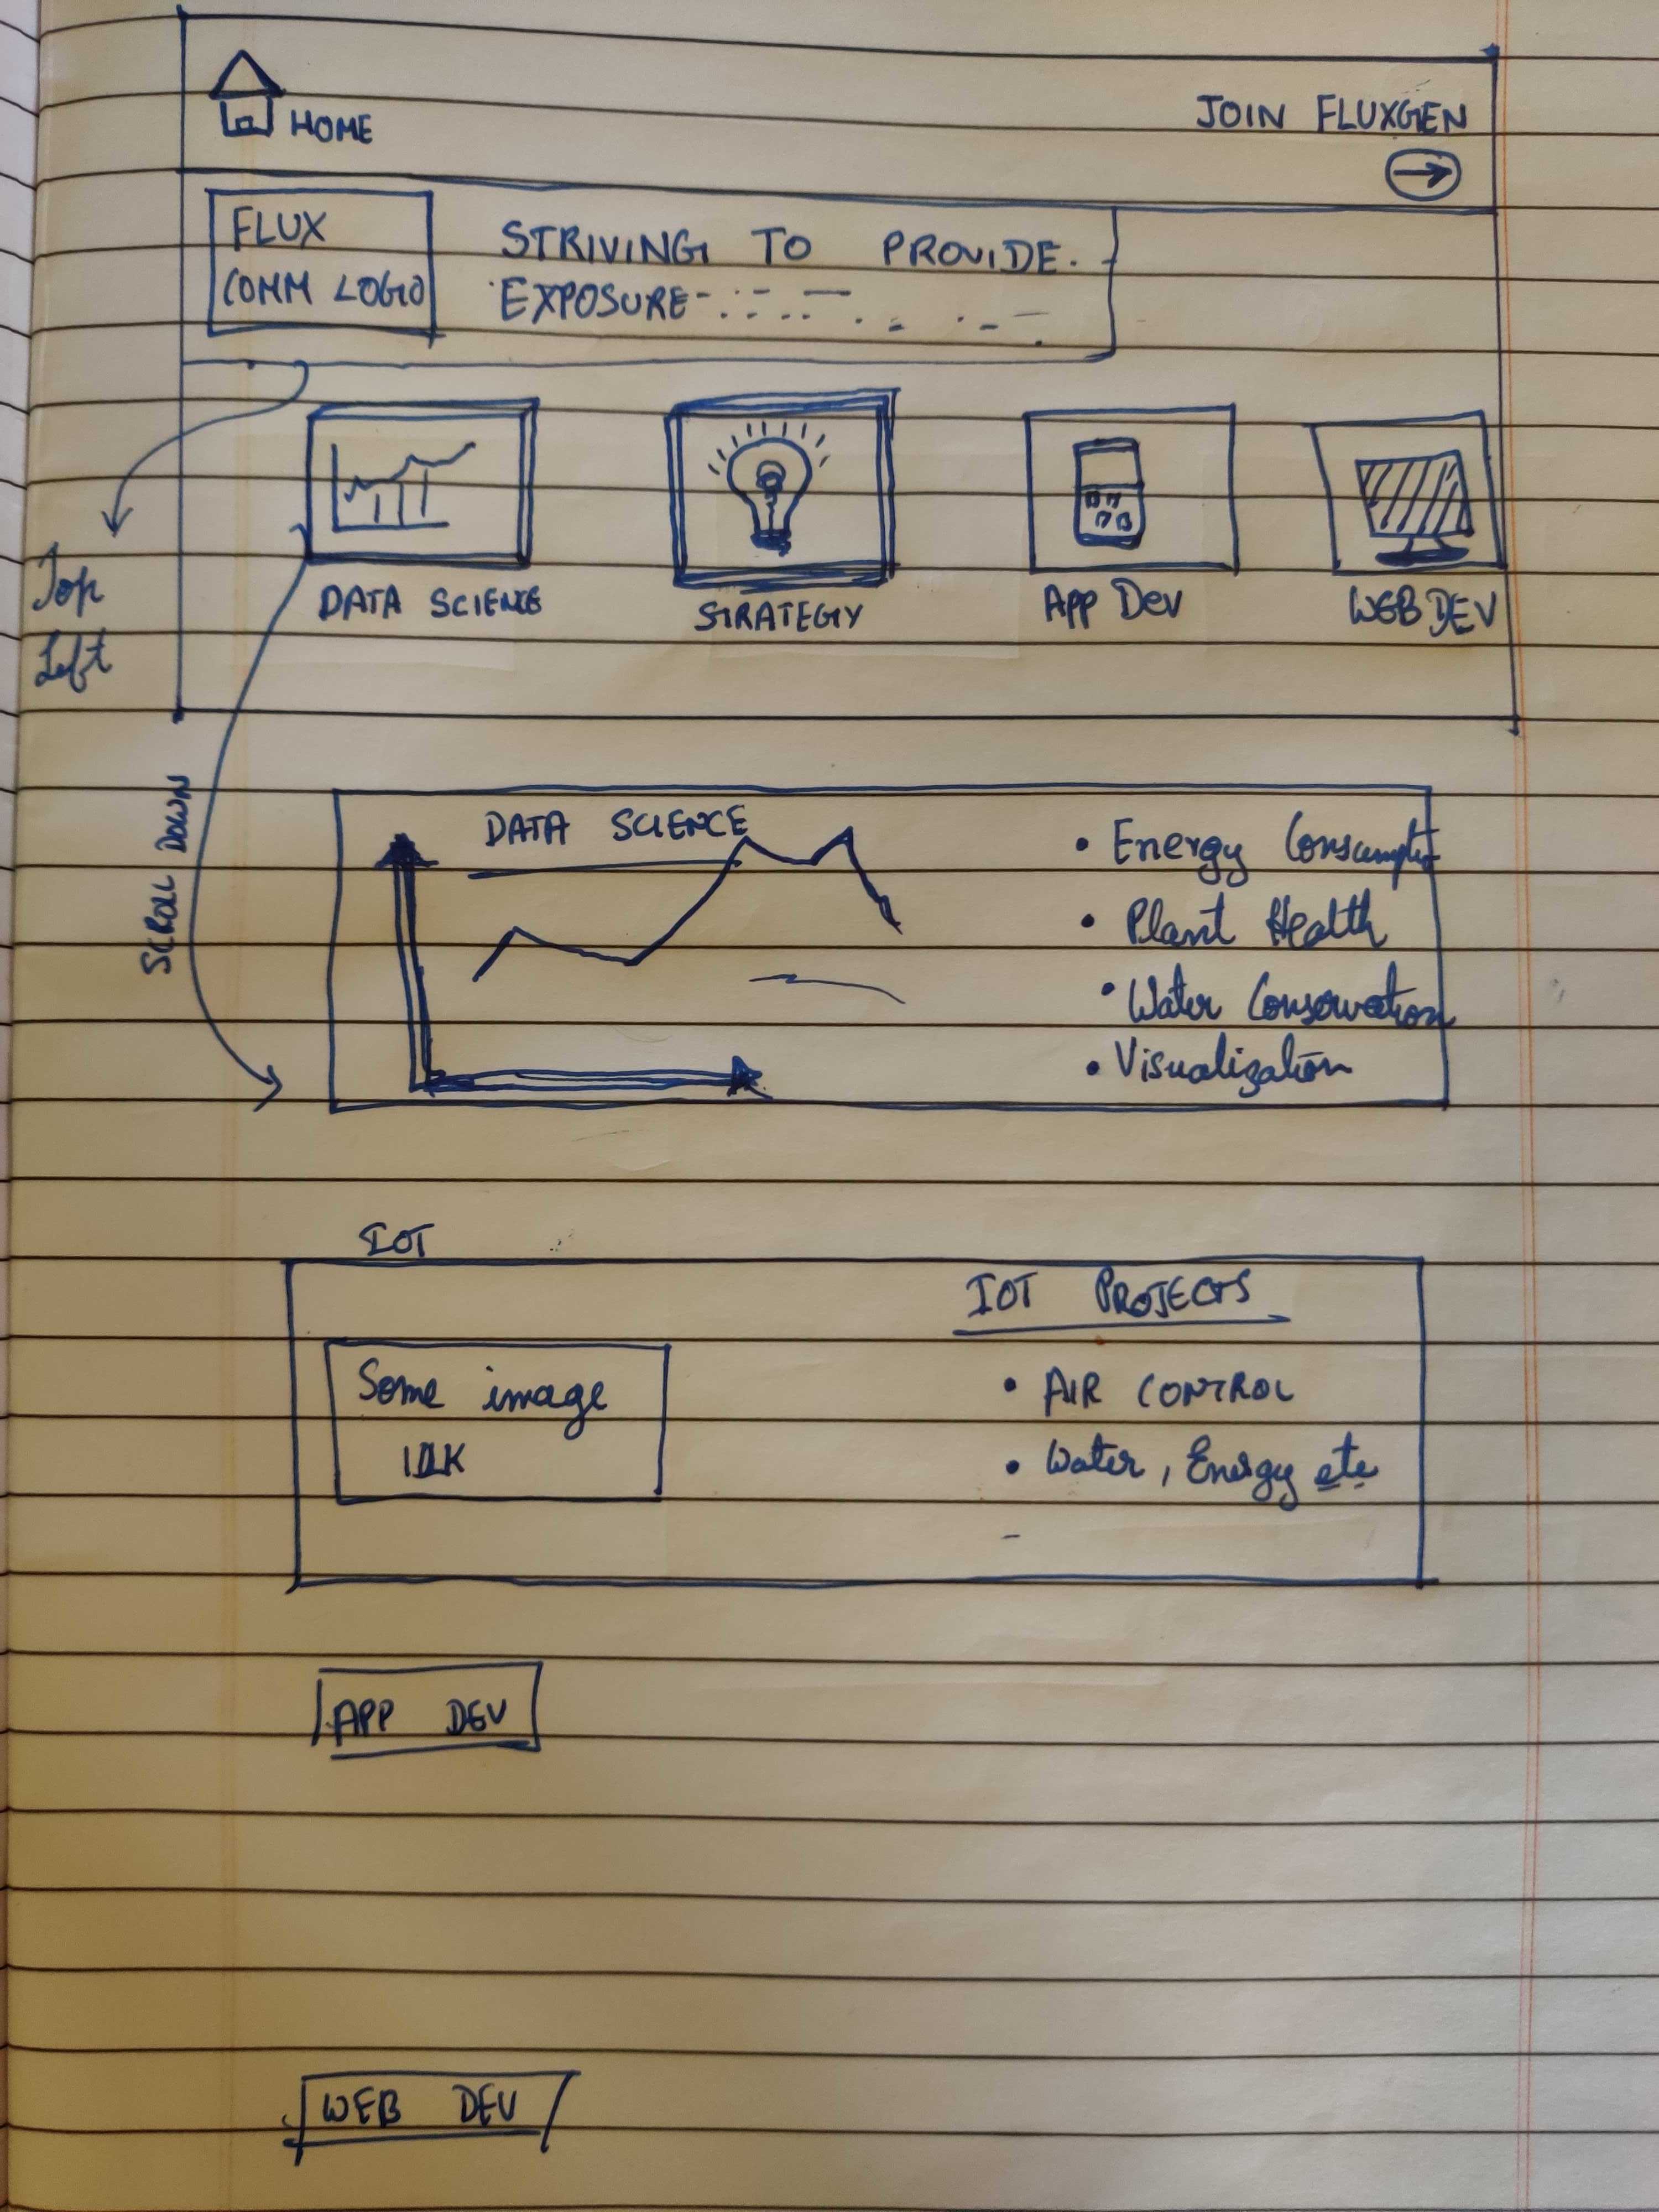 HOME
JOIN FLUXGEN
FLUX
COMM LOGO
STRIVING TO PROVIDE.
EXPOSURE
Top
Left
DATA SCIENCE
STRATEGY
APP DEV
WEB DEV
SCROLL DOWN
DATA SCIENCE
• Energy Consumpti
• Plant Health
• Water Conservation
• Visualization
IOT
IOT PROJECTS
Some image
IDK
• AIR CONTROL
• Water, Energy etc
APP DEV
WEB DEV